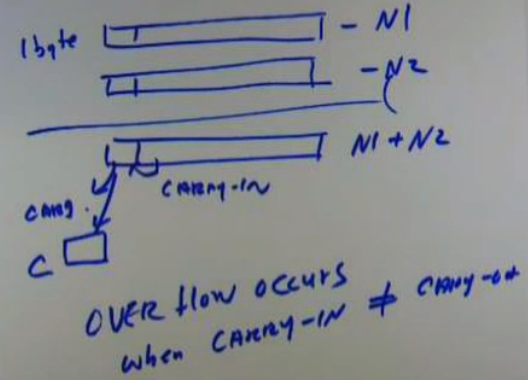 1 byte
- N1
- N2
N1 + N2
CARRY-IN
C
OVER flow occurs
when CARRY-IN ≠ CARRY-out